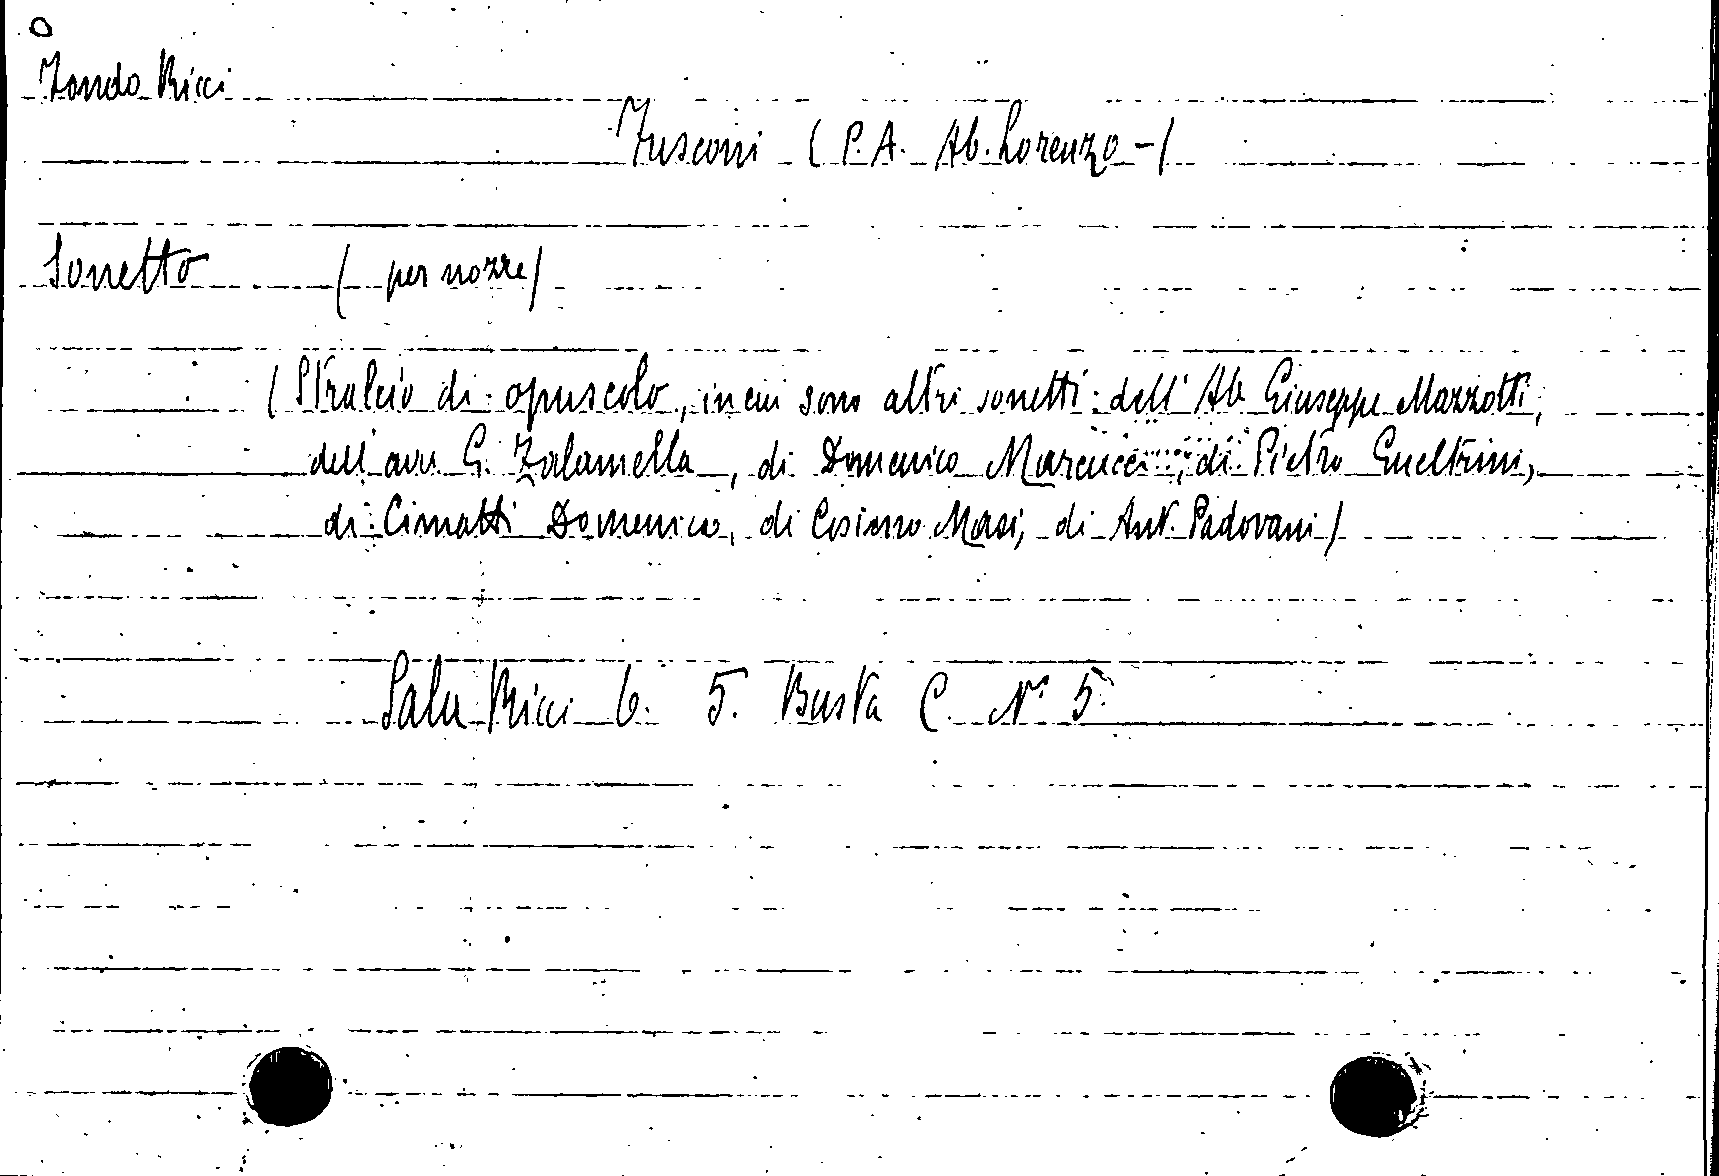 Fondo Ricci
Fusconi (P. A. Ab. Lorenzo -)
Sonetto (per nozze)
(Stralcio di opuscolo, in cui sono altri sonetti: dell' Ab Giuseppe Mazzotti,
dell'avv G. Zalamella, di Domenico Marcucci, di Pietro Gueltrini,
di Cimatti Domenico, di Cosimo Masi, di Ant. Padovani)
Sala Ricci 6. 5. Busta C. N° 5.